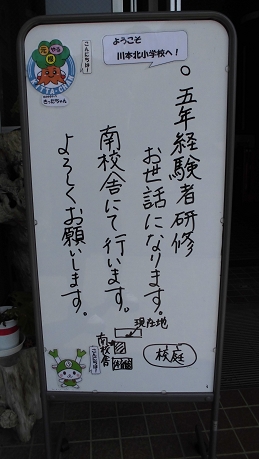 ようこそ
川本北小学校へ!
こんにちはー
元気
やる
根
○五年経験者研修
お世話になります。
南校舎にて行います。
よろしくお願いします。
現在地
南校舎
校庭
こんにちはー